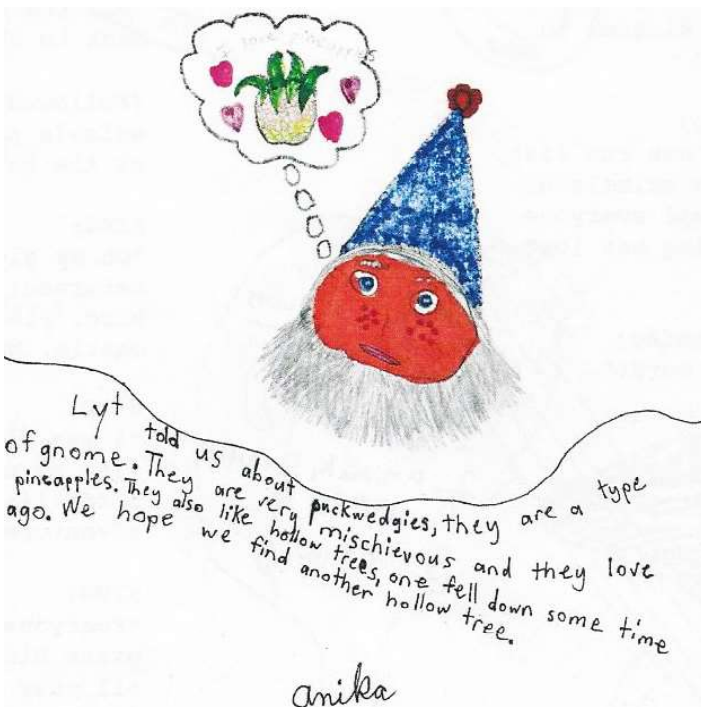 I love pineapples
Lyt told us about puckwedgies, they are a type
of gnome. They are very mischievous and they love
pineapples. They also like hollow trees, one fell down some time
ago. We hope we find another hollow tree.
anika